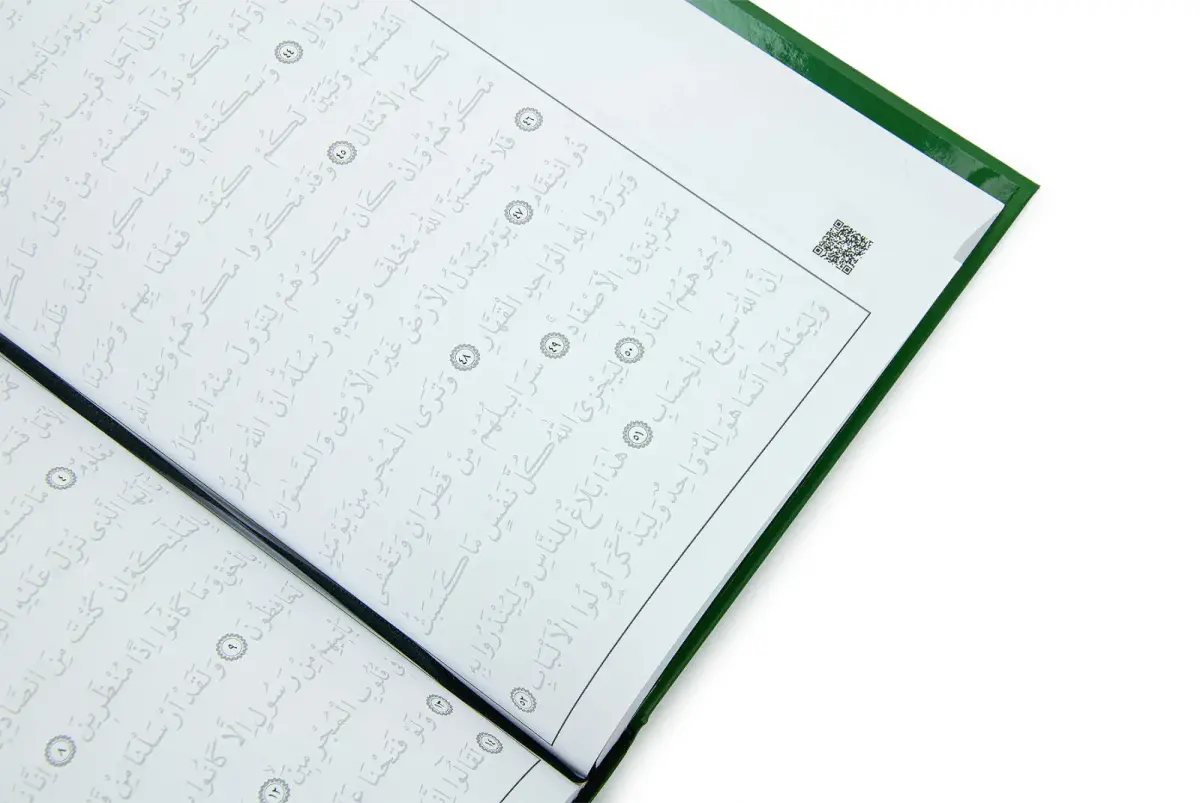 يَوْمَ يَأْتِيهِمُ
إِلَى أَجَلٍ قَرِيبٍ نُجِبْ
أَوَلَمْ تَكُونُوا أَقْسَمْتُمْ مِنْ قَبْلُ مَا لَكُمْ
زَوَالٍ ٤٤ وَسَكَنْتُمْ فِى مَسَاكِنِ الَّذِينَ ظَلَمُوا
أَنْفُسَهُمْ وَتَبَيَّنَ لَكُمْ كَيْفَ فَعَلْنَا بِهِمْ وَضَرَبْنَا
لَكُمُ الْأَمْثَالَ ٤٥ وَقَدْ مَكَرُوا مَكْرَهُمْ وَعِنْدَ اللّٰهِ
مَكْرُهُمْ وَإِنْ كَانَ مَكْرُهُمْ لِتَزُولَ مِنْهُ الْجِبَالُ
٤٦ فَلَا تَحْسَبَنَّ اللّٰهَ مُخْلِفَ وَعْدِهِ رُسُلَهُ إِنَّ اللّٰهَ عَزِيزٌ
ذُو انْتِقَامٍ ٤٧ يَوْمَ تُبَدَّلُ الْأَرْضُ غَيْرَ الْأَرْضِ وَالسَّمٰوَاتُ
وَبَرَزُوا لِلّٰهِ الْوَاحِدِ الْقَهَّارِ ٤٨ وَتَرَى الْمُجْرِمِينَ يَوْمَئِذٍ
مُقَرَّنِينَ فِى الْأَصْفَادِ ٤٩ سَرَابِيلُهُمْ مِنْ قَطِرَانٍ وَتَغْشٰى
وُجُوهَهُمُ النَّارُ ٥٠ لِيَجْزِىَ اللّٰهُ كُلَّ نَفْسٍ مَا كَسَبَتْ
إِنَّ اللّٰهَ سَرِيعُ الْحِسَابِ ٥١ هٰذَا بَلَاغٌ لِلنَّاسِ وَلِيُنْذَرُوا بِهِ
وَلِيَعْلَمُوا أَنَّمَا هُوَ إِلٰهٌ وَاحِدٌ وَلِيَذَّكَّرَ أُولُوا الْأَلْبَابِ ٥٢
مَعْلُومٌ ٤ مَا تَسْبِقُ
الَّذِى نُزِّلَ عَلَيْهِ
إِنْ كُنْتَ مِنَ
وَمَا كَانُوا إِذًا مُنْظَرِينَ ٨ إِنَّا
لَحَافِظُونَ ٩ وَلَقَدْ أَرْسَلْنَا مِنْ
مِنْ رَسُولٍ إِلَّا كَانُوا
قُلُوبِ الْمُجْرِمِينَ ١٢
١٣ وَلَوْ فَتَحْنَا
١٤ لَقَالُوا